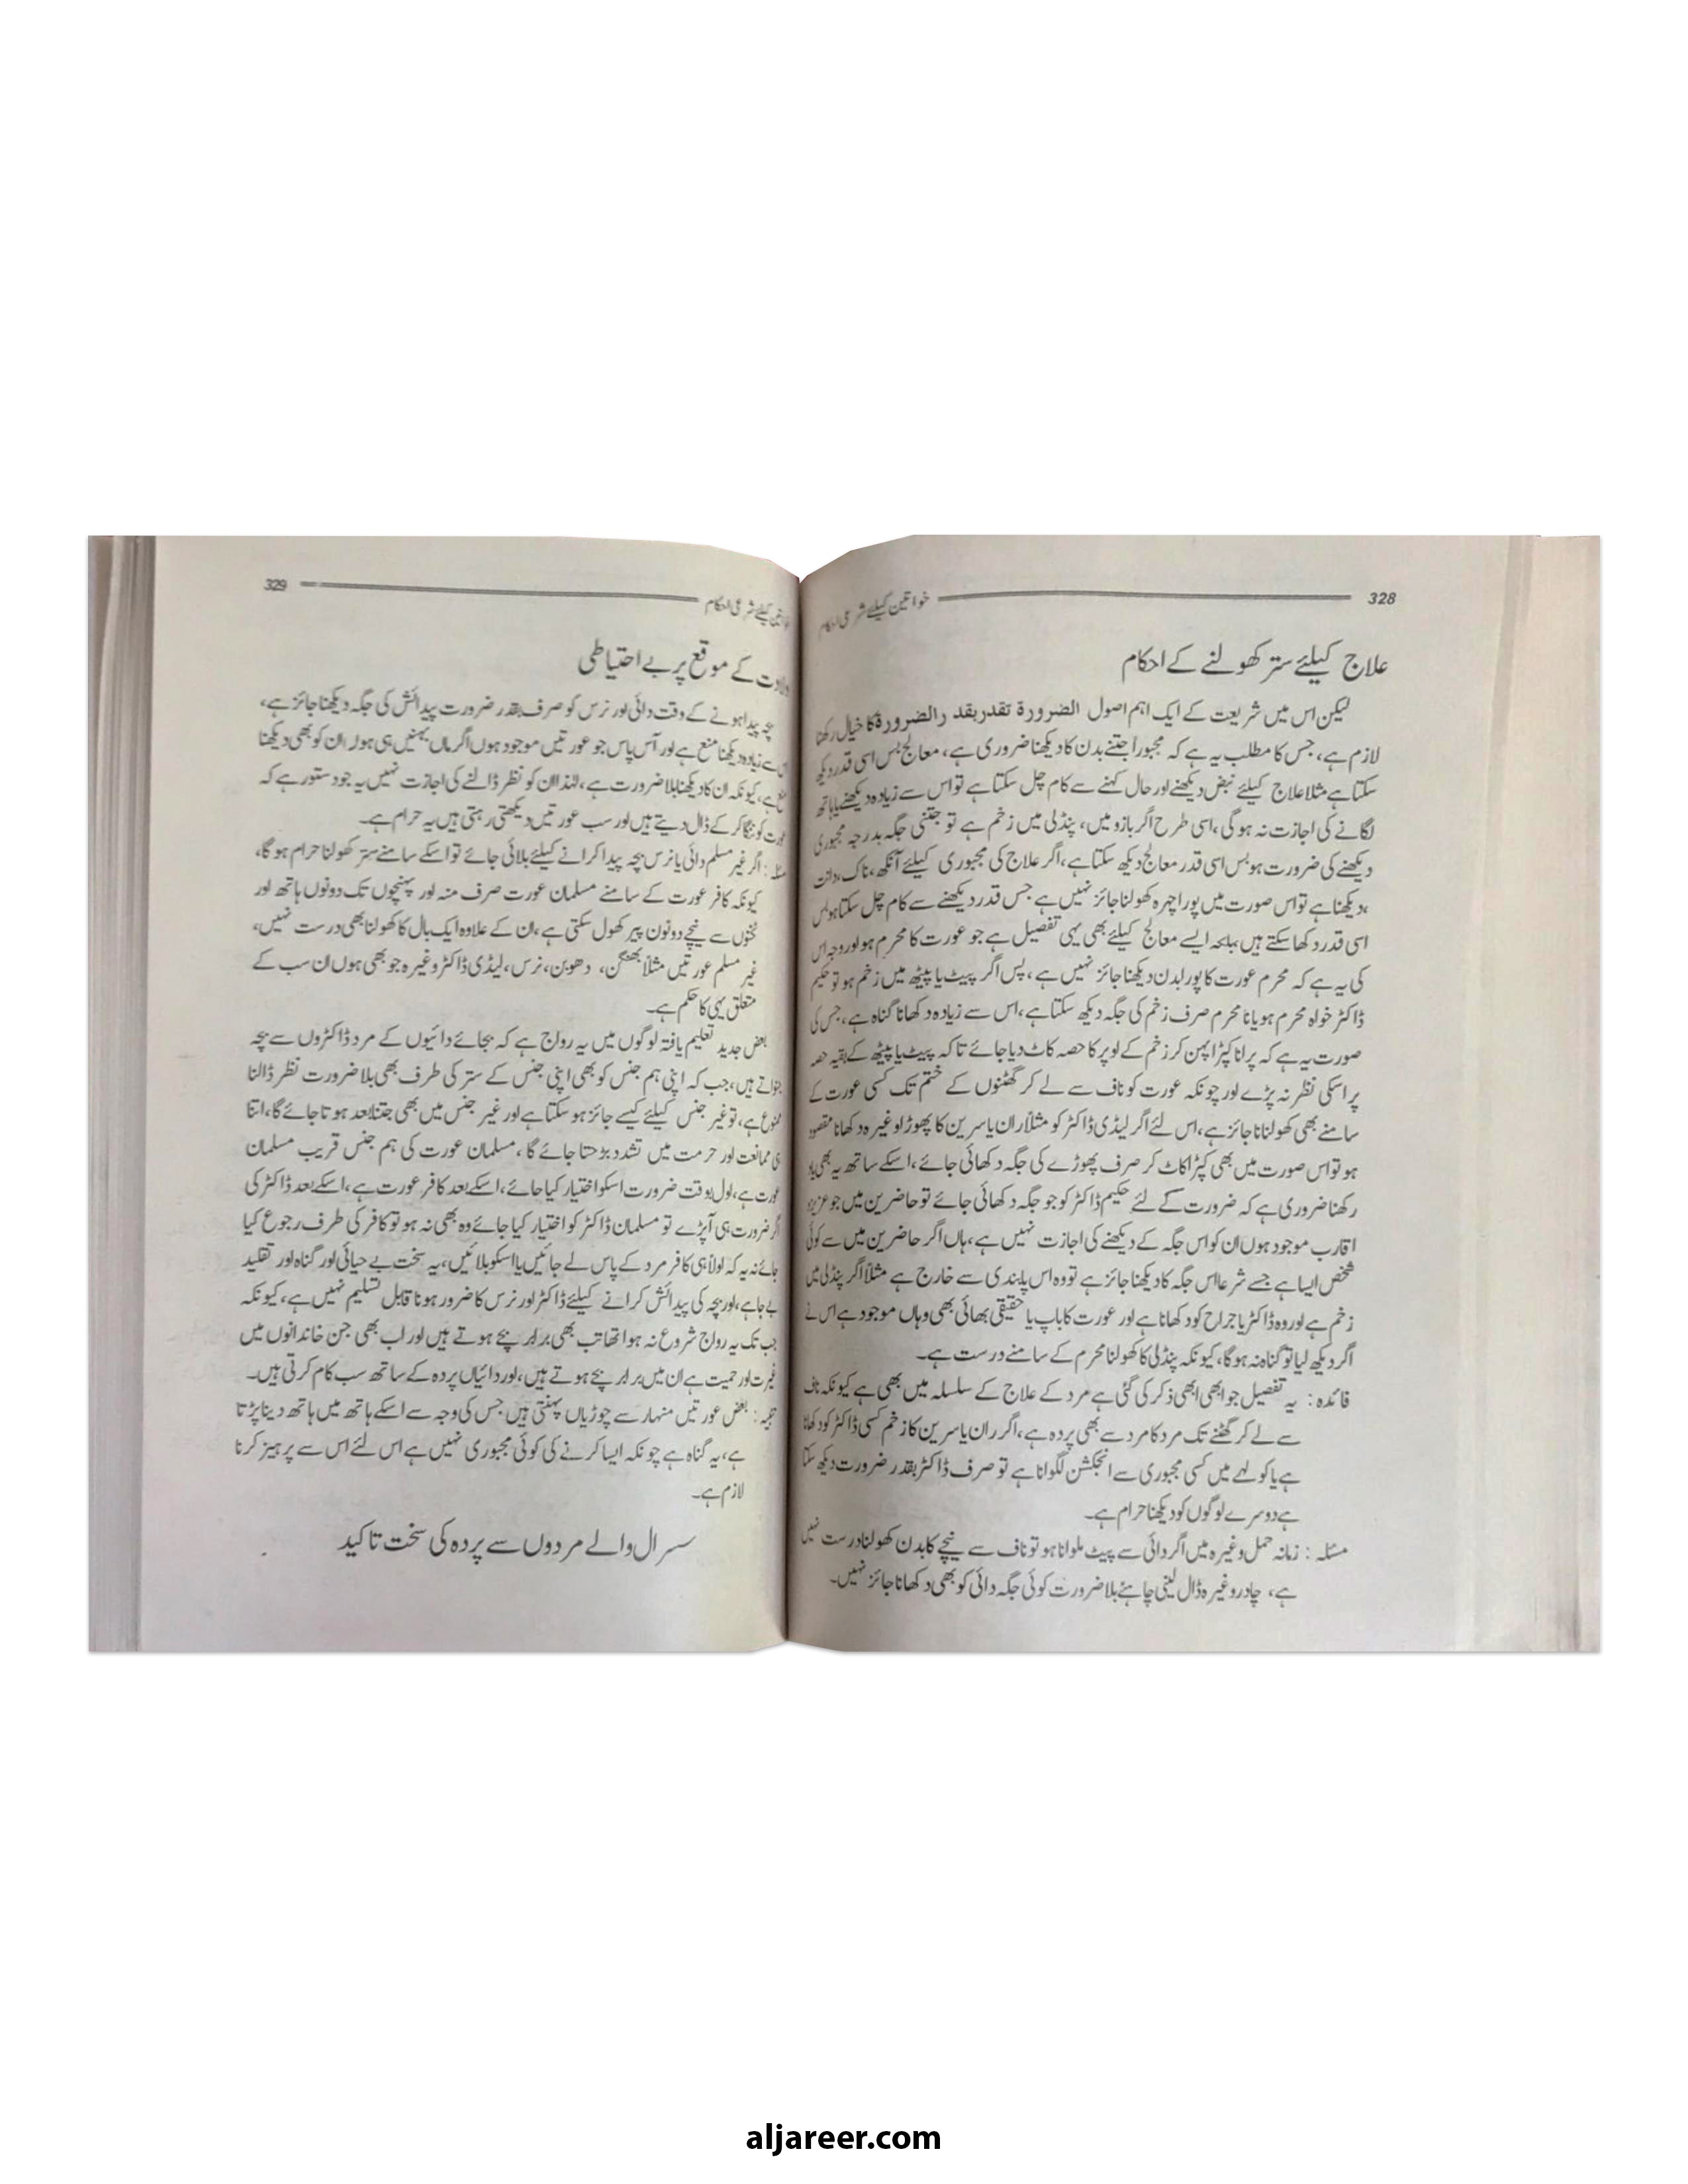 328
خواتین کیلئے شرعی احکام
علاج کیلئے ستر کھولنے کے احکام
لیکن اس میں شریعت کے ایک اہم اصول الضرورة تقدر بقد رالضرورة کا خیال رکھنا
لازم ہے، جس کا مطلب یہ ہے کہ مجبوراً جتنے بدن کا دیکھنا ضروری ہے، معالج بس اسی قدر دیکھ
سکتا ہے مثلا علاج کیلئے نبض دیکھنے اور حال کہنے سے کام چل سکتا ہے تو اس سے زیادہ دیکھنے یا ہاتھ
لگانے کی اجازت نہ ہوگی، اسی طرح اگر بازو میں، پنڈلی میں زخم ہے تو جتنی جگہ بدرجہ مجبوری
دیکھنے کی ضرورت ہو بس اسی قدر معالج دیکھ سکتا ہے، اگر علاج کی مجبوری کیلئے آنکھ، ناک، دانت
،دیکھنا ہے تو اس صورت میں پورا چہرہ کھولنا جائز نہیں ہے جس قدر دیکھنے سے کام چل سکتا ہو بس
اسی قدر دکھا سکتے ہیں بلکہ ایسے معالج کیلئے بھی یہی تفصیل ہے جو عورت کا محرم ہو اور وجہ اس
کی یہ ہے کہ محرم عورت کا پورا بدن دیکھنا جائز نہیں ہے، پس اگر پیٹ یا پیٹھ میں زخم ہو تو حکیم
ڈاکٹر خواہ محرم ہو یا نا محرم صرف زخم کی جگہ دیکھ سکتا ہے، اس سے زیادہ دکھانا گناہ ہے، جس کی
صورت یہ ہے کہ پرانا کپڑا پہن کر زخم کے اوپر کا حصہ کاٹ دیا جائے تاکہ پیٹ یا پیٹھ کے بقیہ حصہ
پر اسکی نظر نہ پڑے اور چونکہ عورت کو ناف سے لے کر گھٹنوں کے ختم تک کسی عورت کے
سامنے بھی کھولنا ناجائز ہے، اس لئے اگر لیڈی ڈاکٹر کو مثلاً ران یا سرین کا پھوڑا وغیرہ دکھانا مقصود
ہو تو اس صورت میں بھی کپڑا کاٹ کر صرف پھوڑے کی جگہ دکھائی جائے، اسکے ساتھ یہ بھی یاد
رکھنا ضروری ہے کہ ضرورت کے لئے حکیم ڈاکٹر کو جو جگہ دکھائی جائے تو حاضرین میں جو عزیزو
اقارب موجود ہوں ان کو اس جگہ کے دیکھنے کی اجازت نہیں ہے، ہاں اگر حاضرین میں سے کوئی
شخص ایسا ہے جسے شرعا اس جگہ کا دیکھنا جائز ہے تو وہ اس پابندی سے خارج ہے مثلاً اگر پنڈلی میں
زخم ہے اور وہ ڈاکٹر یا جراح کو دکھانا ہے اور عورت کا باپ یا حقیقی بھائی بھی وہاں موجود ہے اس نے
اگر دیکھ لیا تو گناہ نہ ہوگا، کیونکہ پنڈلی کا کھولنا محرم کے سامنے درست ہے۔
فائدہ : یہ تفصیل جو ابھی ابھی ذکر کی گئی ہے مرد کے علاج کے سلسلہ میں بھی ہے کیونکہ ناف
سے لے کر گھٹنے تک مرد کا مرد سے بھی پردہ ہے، اگر ران یا سرین کا زخم کسی ڈاکٹر کو دکھانا
ہے یا کولہے میں کسی مجبوری سے انجکشن لگوانا ہے تو صرف ڈاکٹر بقدر ضرورت دیکھ سکتا
ہے دوسرے لوگوں کو دیکھنا حرام ہے۔
مسئلہ : زمانہ حمل وغیرہ میں اگر دائی سے پیٹ ملوانا ہو تو ناف سے نیچے کا بدن کھولنا درست نہیں
ہے، چادر وغیرہ ڈال لینی چاہئے بلا ضرورت کوئی جگہ دائی کو بھی دکھانا جائز نہیں۔
329
خواتین کیلئے شرعی احکام
ولادت کے موقع پر بے احتیاطی
بچہ پیدا ہونے کے وقت دائی اور نرس کو صرف بقدر ضرورت پیدائش کی جگہ دیکھنا جائز ہے،
اس سے زیادہ دیکھنا منع ہے اور آس پاس جو عورتیں موجود ہوں اگر ماں بہنیں ہی ہوں ان کو بھی دیکھنا
منع ہے، کیونکہ ان کا دیکھنا بلا ضرورت ہے، لہٰذا ان کو نظر ڈالنے کی اجازت نہیں یہ جو دستور ہے کہ
عورت کو ننگا کر کے ڈال دیتے ہیں اور سب عورتیں دیکھتی رہتی ہیں یہ حرام ہے۔
مسئلہ : اگر غیر مسلم دائی یا نرس بچہ پیدا کرانے کیلئے بلائی جائے تو اسکے سامنے ستر کھولنا حرام ہوگا،
کیونکہ کافر عورت کے سامنے مسلمان عورت صرف منہ اور پہنچوں تک دونوں ہاتھ اور
ٹخنوں سے نیچے دونوں پیر کھول سکتی ہے، ان کے علاوہ ایک بال کا کھولنا بھی درست نہیں،
غیر مسلم عورتیں مثلاً بھنگن، دھوبن، نرس، لیڈی ڈاکٹر وغیرہ جو بھی ہوں ان سب کے
متعلق یہی کا حکم ہے۔
بعض جدید تعلیم یافتہ لوگوں میں یہ رواج ہے کہ بجائے دائیوں کے مرد ڈاکٹروں سے بچہ
جنواتے ہیں، جب کہ اپنی ہم جنس کو بھی اپنی جنس کے ستر کی طرف بھی بلا ضرورت نظر ڈالنا
ممنوع ہے، تو غیر جنس کیلئے کیسے جائز ہو سکتا ہے اور غیر جنس میں بھی جتنا بعد ہوتا جائے گا، اتنا
ہی ممانعت اور حرمت میں تشدد بڑھتا جائے گا، مسلمان عورت کی ہم جنس قریب مسلمان
عورت ہے، اول بوقت ضرورت اسکو اختیار کیا جائے، اسکے بعد کافر عورت ہے، اسکے بعد ڈاکٹر کی
اگر ضرورت ہی آ پڑے تو مسلمان ڈاکٹر کو اختیار کیا جائے وہ بھی نہ ہو تو کافر کی طرف رجوع کیا
جائے نہ یہ کہ اولاً ہی کافر مرد کے پاس لے جائیں یا اسکو بلائیں، یہ سخت بے حیائی اور گناہ اور تقلید
بے جا ہے، اور بچہ کی پیدائش کرانے کیلئے ڈاکٹر اور نرس کا ضرور ہونا قابل تسلیم نہیں ہے، کیونکہ
جب تک یہ رواج شروع نہ ہوا تھا تب بھی برابر بچے ہوتے ہیں اور اب بھی جن خاندانوں میں
غیرت اور حمیت ہے ان میں برابر بچے ہوتے ہیں، اور دائیاں پردہ کے ساتھ سب کام کرتی ہیں۔
تنبیہ : بعض عورتیں منہار سے چوڑیاں پہنتی ہیں جس کی وجہ سے اسکے ہاتھ میں ہاتھ دینا پڑتا
ہے، یہ گناہ ہے چونکہ ایسا کرنے کی کوئی مجبوری نہیں ہے اس لئے اس سے پرہیز کرنا
لازم ہے۔
سسرال والے مردوں سے پردہ کی سخت تاکید
aljareer.com